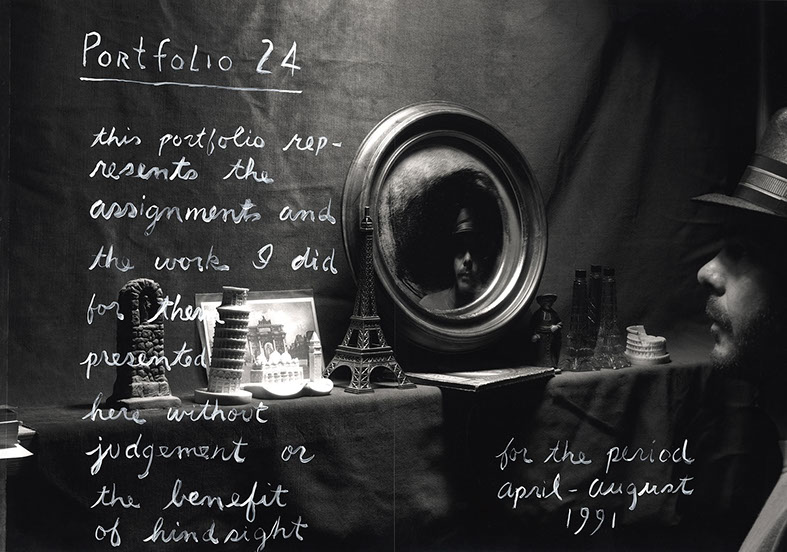 Portfolio 24
this portfolio rep-
resents the
assignments and
the work I did
for them
presented
here without
judgement or
the benefit
of hindsight
for the period
april-august
1991